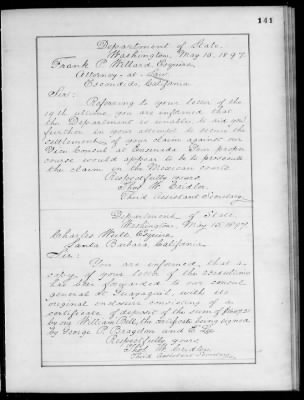 141
Department of State.
Washington, May 15, 1897.
Frank P. Willard, Esquire,
Attorney-at-Law,
Escondido, California.
Sir:
Referring to your letter of the
19th ultimo, you are informed that
the Department is unable to aid you
further in your attempt to secure the
settlement of your claim against our
Vice Consul at Ensenada. Your proper
course would appear to be to prosecute
the claim in the Mexican courts.
Respectfully yours,
Thos. W. Cridler
Third Assistant Secretary.
Department of State.
Washington, May 15, 1897.
Charles Weile Esquire,
Santa Barbara California.
Sir:
You are informed, that a
copy of your letter of the
has been forwarded to our consul
general at Guayaquil, with its
original enclosure consisting of a
certificate of deposit of the sum of
by one William Bell, the certificate being signed
by George P. Bragdon and
Respectfully yours,
Thos. W. Cridler
Third Assistant Secretary.